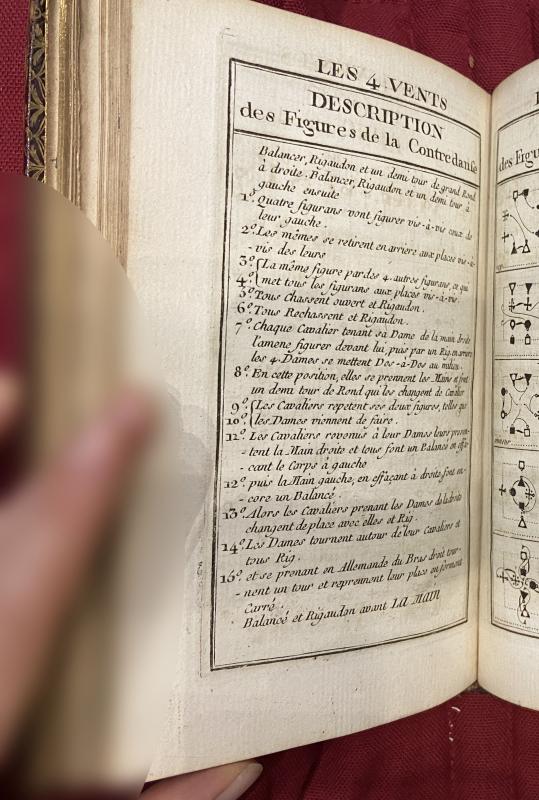 LES 4 VENTS
DESCRIPTION
des Figures de la Contredanse
Balancer, Rigaudon et un demi tour de grand Rond
à droite. Balancer, Rigaudon et un demi tour à
gauche ensuite
1º. Quatre figurans vont figurer vis-à-vis ceux de
leur gauche.
2º. Les mêmes se retirent en arriere aux places vis-à-
-vis des leurs
3º. { La même figure par des 4. autres figurans, ce qui
4º. { met tous les figurans aux places vis-à-vis.
5º. Tous Chassent ouvert et Rigaudon.
6º. Tous Rechassent et Rigaudon.
7º. Chaque Cavalier tenant sa Dame de la main droite
l'amene figurer devant lui, puis par un Rig. en arriere
les 4. Dames se mettent Dos-à-Dos au milieu.
8º. En cette position, elles se prennent les Mains et font
un demi tour de Rond qui les changent de Cavalier
9º. { Les Cavaliers repetent ses deux figures, telles que
10º. { les Dames viennent de faire.
11º. Les Cavaliers revenus à leur Dames leurs presen-
-tent la Main droite et tous font un Balancé en effa-
-cant le Corps à gauche
12º. puis la Main gauche, en effaçant à droite font en-
-core un Balancé.
13º. Alors les Cavaliers prenant les Dames de la droite
changent de place avec elles et Rig.
14º. Les Dames tournent autour de leur Cavaliers et
tous Rig.
15º. et se prenant en Allemande du Bras droit tour-
-nent un tour et reprennent leur place en formant
Carré.
Balancé et Rigaudon avant LA MAIN
des Figu